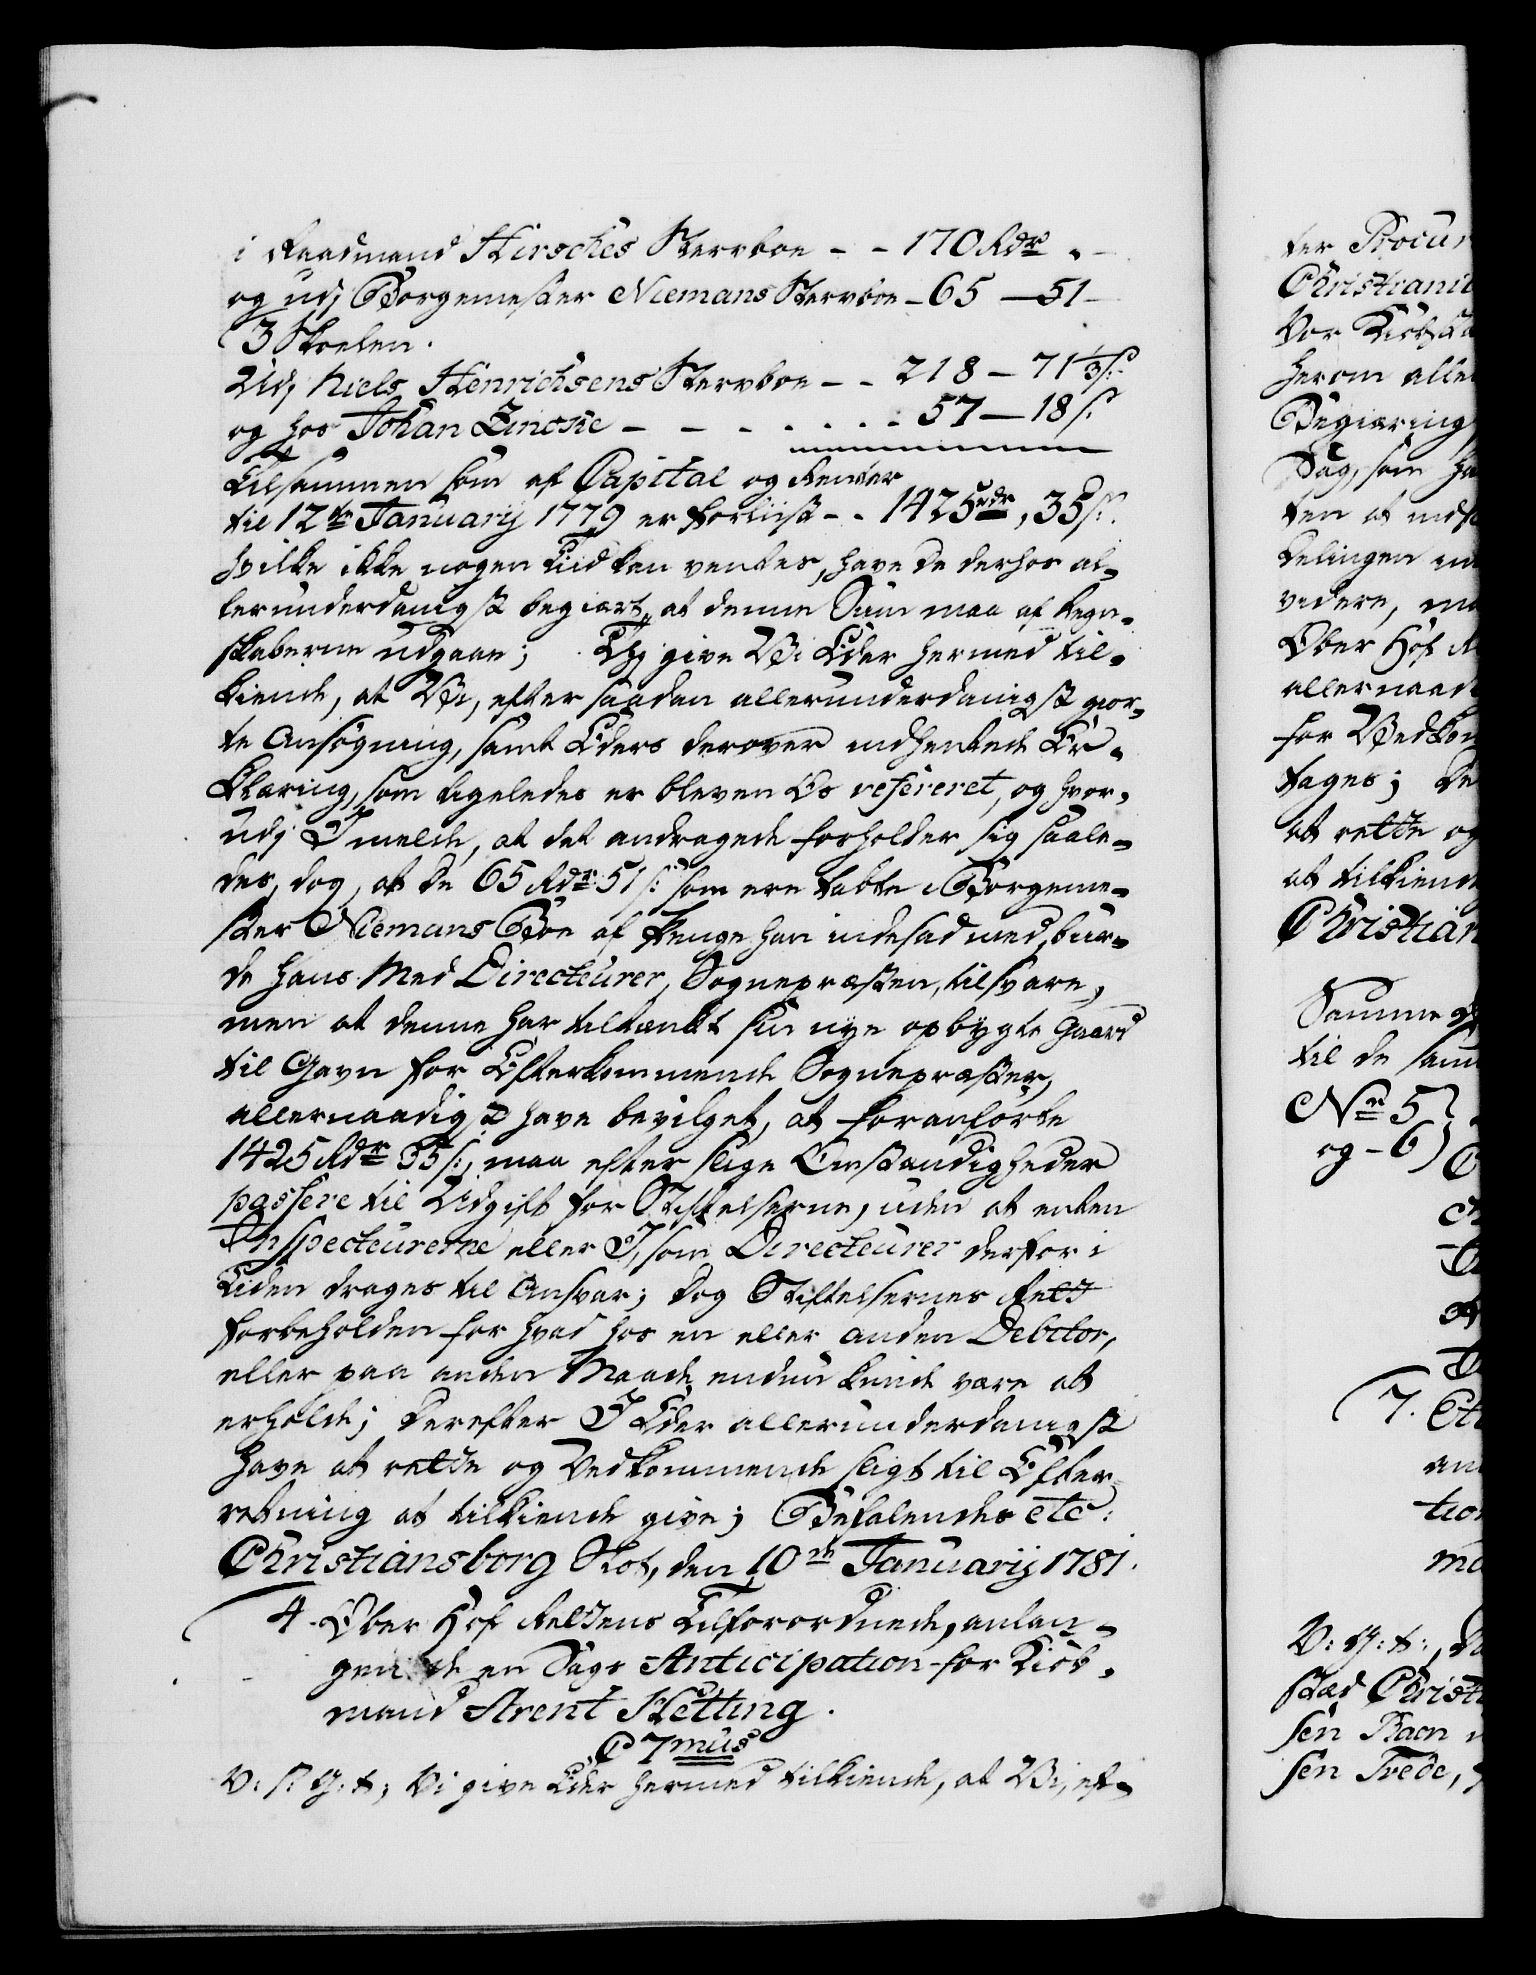 i Raadmand Hirsches Stervboe - - 170 Rdr . -
og udj Borgemester Niemans Stervboe - 65 - 51 -
3 Skoelen.
Udj Niels Henrichsens Stervboe - - 218 - 71 1/3 s:
og hos Johan Zincke - - - - - - - 57 - 18 s:
tilsammen som af Capital og Renter
til 12te Januarij 1779 er forliist - - 1425 rdr, 35 s:
hvilke ikke nogen Tiid kan ventes, have de derhos al-
lerunderdanigst begiært, at denne Sum maa af Regn-
skaberne udgaae; Thj give Vi Eder hermed til-
kiende, at Vi, efter saadan allerunderdanigst gior-
te Ansøgning, samt Eders derover indhentede Er-
klæring, som ligeledes er bleven Os refereret, og hvor-
udj I melde, at det andragede forholder sig saale-
des, dog, at de 65 Rdr 51 s: som ere tabte i Borgeme-
ster Niemans Boe af Penge han indesad med, bur-
de hans Med Directeurer, Sognepræsten, tilsvare,
men at denne har tiltænkt sin nye opbygte Gaard
til Gavn for Efterkommende Sognepræster,
allernaadigst have bevilget, at foranførte
1425 Rdr 35 s:, maa efter slige Omstændigheder
passere til Udgift for Stiftelserne, uden at enten
Inspecteurerne eller I, som Directeurer derfor i
Tiden drages til Ansvar; dog Stiftelsernes Rett
forbeholden for hvad hos en eller anden Debitor,
eller paa anden Maade endnu kunde være at
erholde; derefter I Eder allerunderdanigst
have at rette og Vedkommende sligt til Efter-
retning at tilkiende give; Befalendes etc:
Christiansborg Slot, den 10de Januarij 1781.
4. Ober Hof Rettens Tilforordnede, anlan-
gende en Sags Anticipation for Kiøb-
mand Arent Hetting.
C 7mus
V: S: G: t; Vi give Eder hermed tilkiende, at Vi, ef-
ter Procur
Christiani
Vor Kiøbsta
herom aller
Begiæring
Sag, som ha
ten at inds
delingen
videre, ma
Ober Hof R
allernaad
for Vedkom
tages; De
at rette og
at tilkiende
Christian
Samme
til de sam
No 5
og - 6
7.
tion
ma
V: G: t:,
stæd Christ
sen
sen Trede,